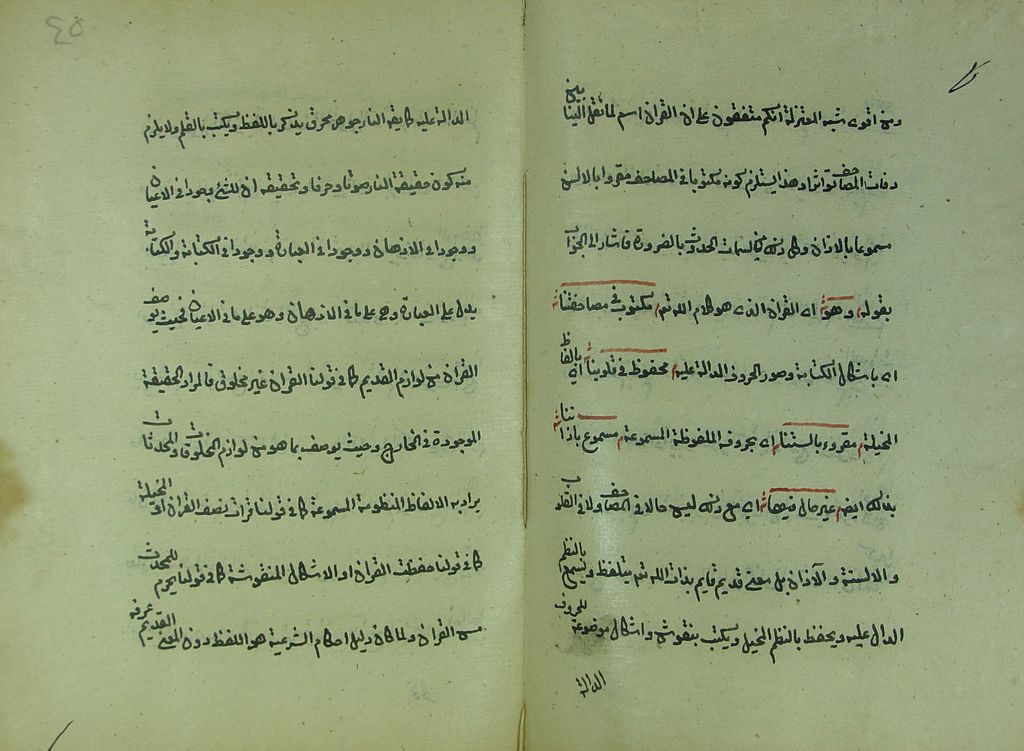 ومن اقوى شبه المعتزلة انكم متفقون على ان القران اسم لما نقل الينا بين
دفات المصاحف تواترا وهذا يستلزم كونه مكتوبا في المصاحف مقروا بالالسن
مسموعا بالاذان وكل ذلك من سمات الحدوث بالضرورة فاشار الى الجواب
بقوله وهو اى القران الذى هو كلام الله تعم مكتوب في مصاحفنا
اى باشكال الكتابة وصور الحروف الدالة عليه محفوظ في قلوبنا اي بالفاظ
المخيلة مقروء بالسنتنا اى بحروفه الملفوظة المسموعة مسموع باذاننا
بذلك ايضم غير حال فيها اي مع ذلك ليس حالا في المصاحف ولا في القلوب
و الالسنة و الآذان بل معنى قديم قايم بذات الله تعم يتلفظ ويسمع بالنظم
الدال عليه ويحفظ بالنظم المخيل ويكتب بنقوش واشكال موضوعة للحروف
الدالة
٤٥
الدالة عليه كما يقه النار جوهر محرق يذكر باللفظ ويكتب بالقلم ولا يلزم
منه كون حقيقة النار صوتا وحرفا وتحقيقه ان للشئ وجودا في الاعيان
ووجودا في الاذهان ووجودا في العبارة ووجودا في الكتابة والكتابة
يدل على العبارة وهى على ما في الاذهان وهو على ما في الاعيان فحيث يوصف
القران من لوازم القديم كما في قولنا القران غير مخلوق فالمراد الحقيقة
الموجودة في الخارج وحيث يوصف بما هو من لوازم المخلوقات والمحدثات
يراد به الالفاظ المنظومة المسموعة كما في قولنا قرات نصف القران او المخيلة
كما في قولنا حفظت القران او الاشكال المنقوشة كما في قولنا يحرم للمحدث
مس القران ولما كان دليل احكام الشرعية هو اللفظ دون المعنى القديم عرفه